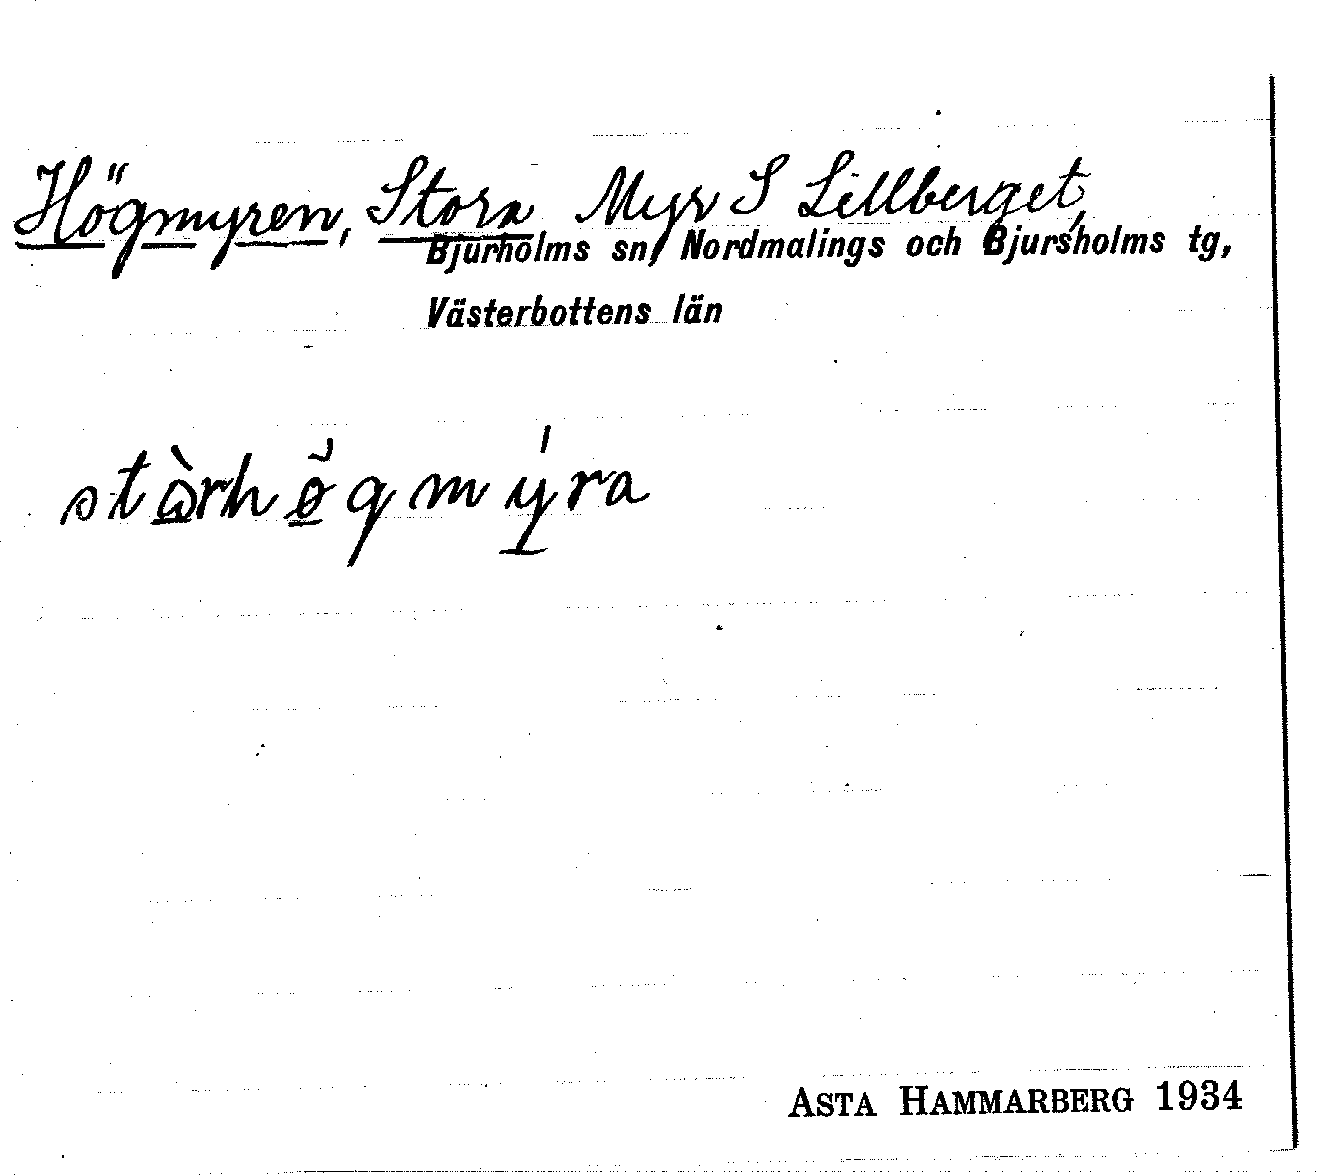 Högmyren, Stora Myr S Lillberget,
Bjurholms sn, Nordmalings och Bjursholms tg,
Västerbottens län
stòrhögmýra
ASTA HAMMARBERG 1934